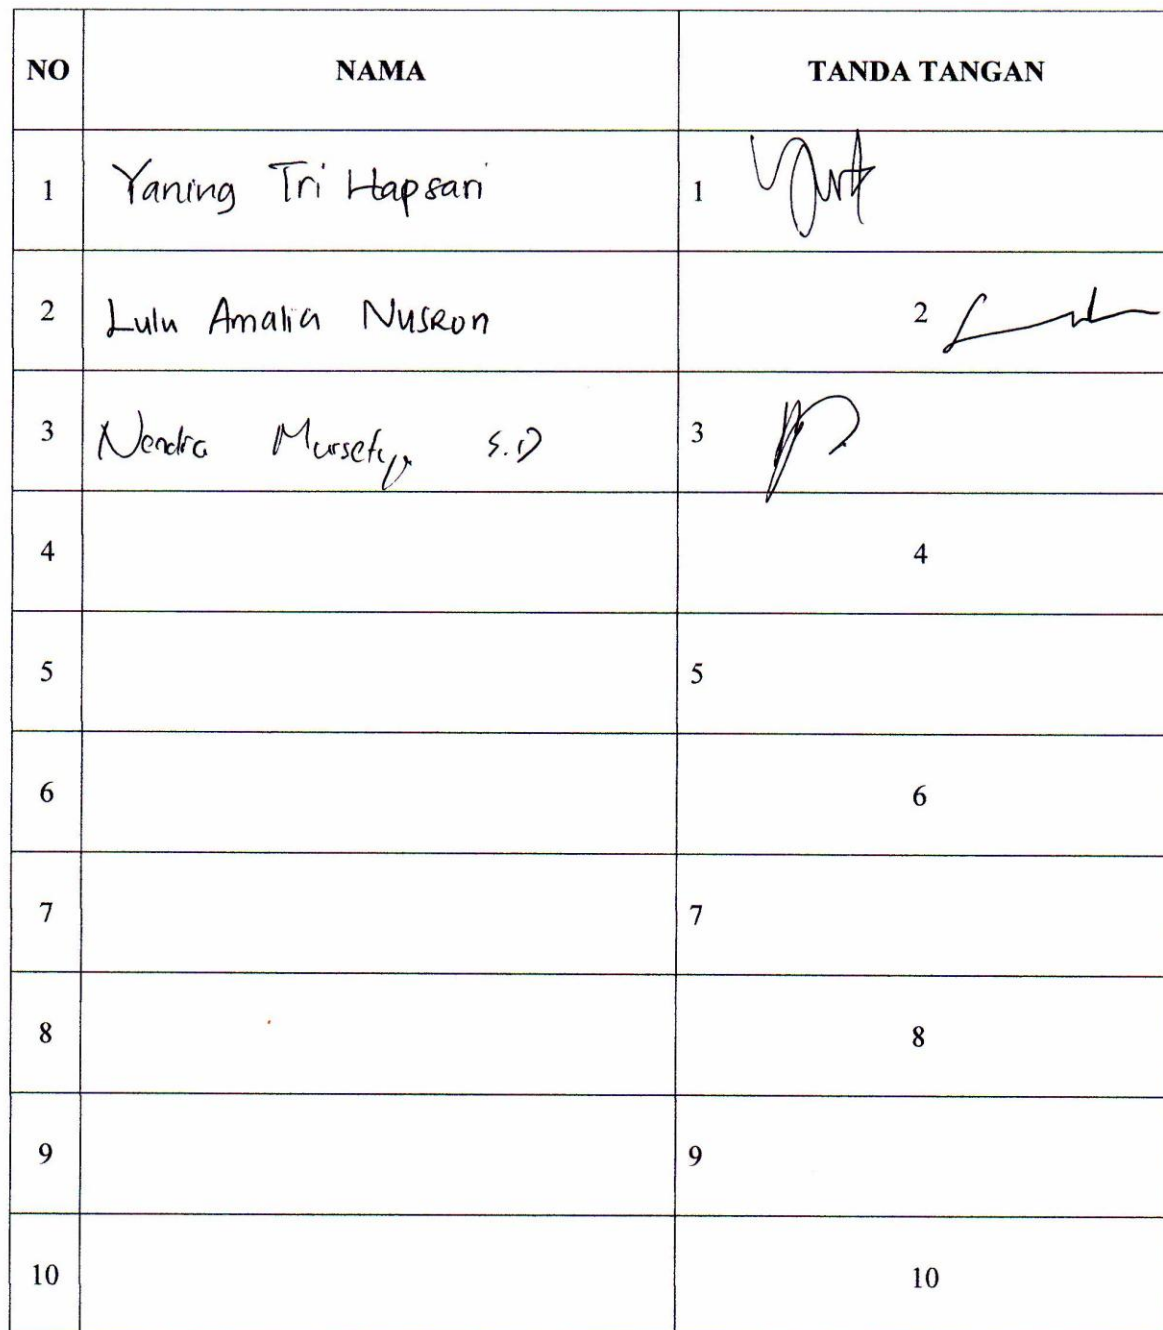 NO NAMA TANDA TANGAN
1 Yaning Tri Hapsari 1
2 Lulu Amalia Nusron 2
3 Nendra Mursetya S.D 3
4 4
5 5
6 6
7 7
8 8
9 9
10 10